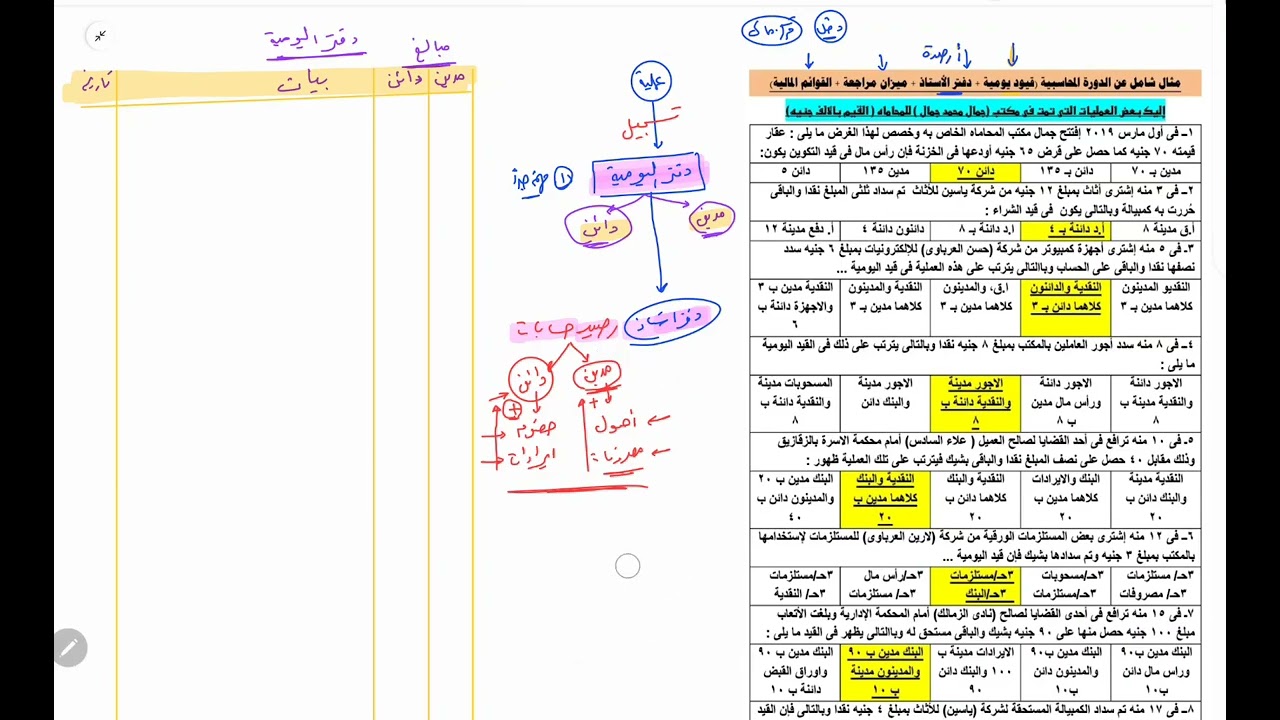 دخل
مركز مالى
أرصدة
مثال شامل عن الدورة المحاسبية (قيود يومية + دفتر الأستاذ + ميزان مراجعة + القوائم المالية)
إليك بعض العمليات التي تمت في مكتب (جمال محمد جمال) للمحاماه (القيم بالالف جنيه)
١ـ فى أول مارس ٢٠١٩ إفتتح جمال مكتب المحاماه الخاص به وخصص لهذا الغرض ما يلى : عقار
قيمته ٧٠ جنيه كما حصل على قرض ٦٥ جنيه أودعها فى الخزنة فإن رأس مال فى قيد التكوين يكون:
مدين بـ ٧٠ دائن بـ ١٣٥ دائن ٧٠ مدين ١٣٥ دائن ٥
٢ـ فى ٣ منه إشترى أثاث بمبلغ ١٢ جنيه من شركة ياسين للأثاث تم سداد ثلثى المبلغ نقدا والباقى
حُررت به كمبيالة وبالتالى يكون فى قيد الشراء :
أ.ق مدينة ٨ أ.د دائنة بـ ٤ ا.د دائنة بـ ٨ دائنون دائنة ٤ أ. دفع مدينة ١٢
٣ـ فى ٥ منه إشترى أجهزة كمبيوتر من شركة (حسن العرباوى) للإلكترونيات بمبلغ ٦ جنيه سدد
نصفها نقدا والباقى على الحساب وباالتالى يترتب على هذه العملية فى قيد اليومية ...
النقديو المدينون النقدية والدائنون ا.ق، والمدينون النقدية والمدينون النقدية مدين ب ٣
كلاهما مدين بـ ٣ كلاهما دائن بـ ٣ كلاهما مدين بـ ٣ كلاهما مدين بـ ٣ والاجهزة دائنة ب
٦
٤ـ فى ٨ منه سدد أجور العاملين بالمكتب بمبلغ ٨ جنيه نقدا وبالتالى يترتب على ذلك فى القيد اليومية
ما يلى :
الاجور دائنة الاجور دائنة الاجور مدينة الاجور مدينة المسحوبات مدينة
والنقدية مدينة ب ورأس مال مدين والنقدية دائنة ب والبنك دائن والنقدية دائنة ب
٨ ب ٨ ٨ ٨
٥ـ فى ١٠ منه ترافع فى أحد القضايا لصالح العميل ( علاء السادس) أمام محكمة الاسرة بالزقازيق
وذلك مقابل ٤٠ حصل على نصف المبلغ نقدا والباقى بشيك فيترتب على تلك العملية ظهور :
النقدية مدينة البنك والايرادات النقدية والبنك النقدية والبنك البنك مدين ب ٢٠
والبنك دائن ب كلاهما مدين ب كلاهما دائن ب كلاهما مدين ب والمدينون دائن ب
٢٠ ٢٠ ٢٠ ٢٠ ٤٠
٦ـ فى ١٢ منه إشترى بعض المستلزمات الورقية من شركة (لارين العرباوى) للمستلزمات لإستخدامها
بالمكتب بمبلغ ٣ جنيه وتم سدادها بشيك فإن قيد اليومية ...
٣حـ/ مستلزمات ٣حـ/مسحوبات ٣حـ/مستلزمات ٣حـ/رأس مال ٣حـ/مستلزمات
٣حـ/ مصروفات ٣حـ/مستلزمات ٣حـ/البنك ٣حـ/ مستلزمات ٣حـ/ النقدية
٧ـ فى ١٥ منه ترافع فى أحدى القضايا لصالح (نادى الزمالك) أمام المحكمة الإدارية وبلغت الأتعاب
مبلغ ١٠٠ جنيه حصل منها على ٩٠ جنيه بشيك والباقى مستحق له وباالتالى يظهر فى القيد ما يلى :
البنك مدين ب٩٠ البنك مدين ب٩٠ الايرادات مدينة ب البنك مدين ب ٩٠ البنك مدين ب ٩٠
وراس مال دائن والمدينون دائن ١٠٠ والبنك دائن ب والمدينون مدينة واوراق القبض
ب١٠ ب١٠ ٩٠ ب ١٠ دائنة ب ١٠
٨ـ فى ١٧ منه تم سداد الكمبيالة المستحقة لشركة (ياسين) للأثاث بمبلغ ٤ جنيه نقدا وبالتالى فإن القيد
عملية
تسجيل
دفتر اليومية
① مهمة جداً
مدين
دائن
دفتر استاذ
رصيد حسابات
مدين
دائن
+
+
أصول
مصروفات
خصوم
ايرادات
دفتر اليومية
مبالغ
مدين دائن بيانات تاريخ